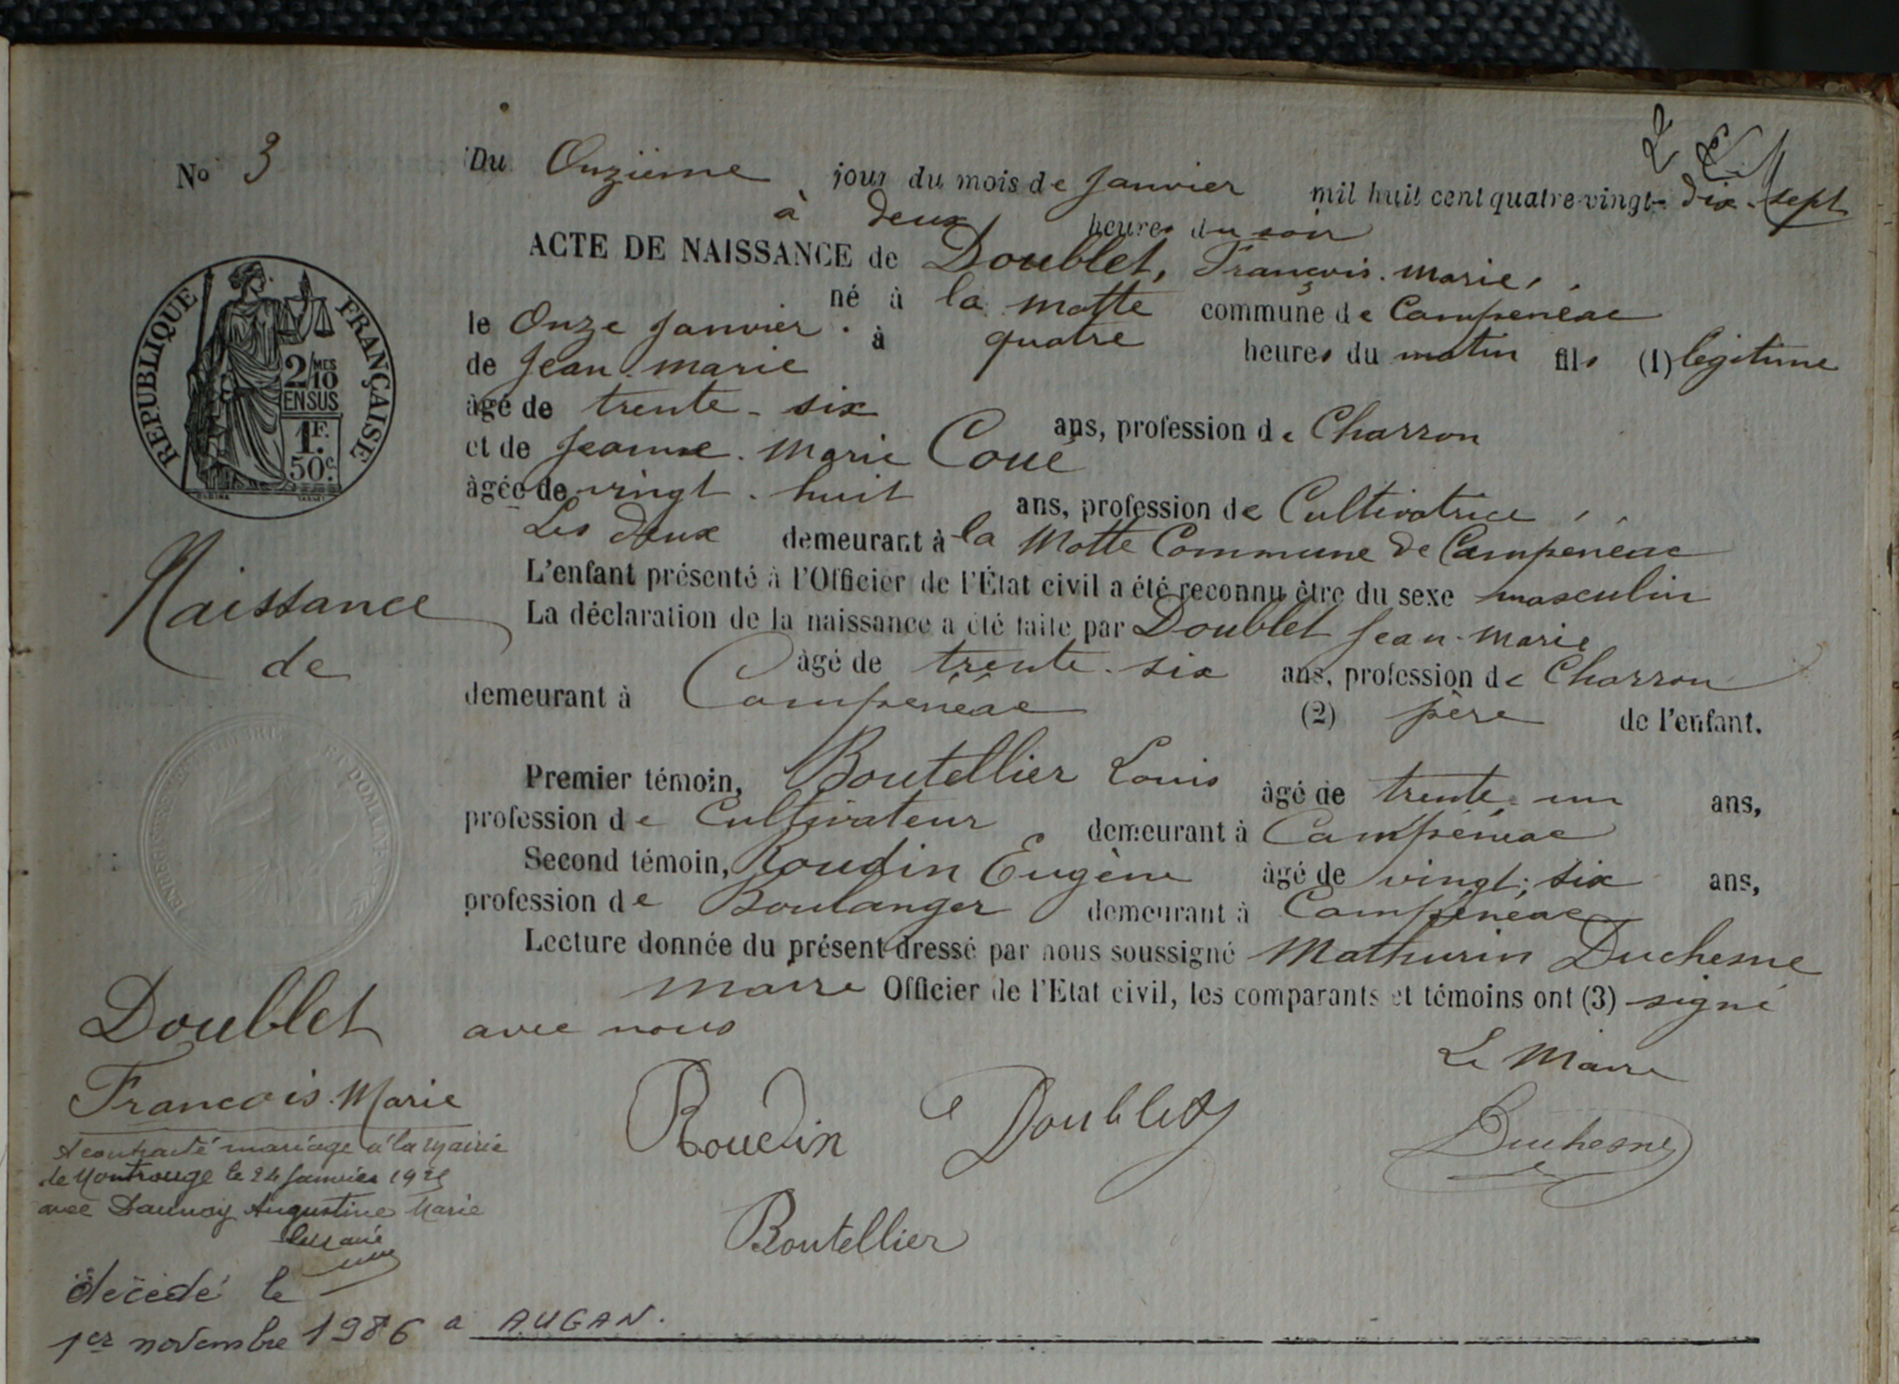 No 3
Du Onzième jour du mois de Janvier mil huit cent quatre-vingt-dix-sept
à deux heures du soir
ACTE DE NAISSANCE de Doublet, François-Marie,
né à la Motte commune de Campénéac
le Onze Janvier à quatre heures du matin fils (1) légitime
de Jean-Marie
âgé de trente-six ans, profession de Charron
et de Jeanne-Marie Coué
âgée de vingt-huit ans, profession de Cultivatrice
Les deux demeurant à la Motte Commune de Campénéac
L'enfant présenté à l'Officier de l'État civil a été reconnu être du sexe masculin
La déclaration de la naissance a été faite par Doublet Jean-Marie
âgé de trente-six ans, profession de Charron
demeurant à Campénéac (2) père de l'enfant.
Premier témoin, Boutellier Louis âgé de trente-un ans,
profession de Cultivateur demeurant à Campénéac
Second témoin, Roudin Eugène âgé de vingt-six ans,
profession de Boulanger demeurant à Campénéac
Lecture donnée du présent dressé par nous soussigné Mathurin Duchesne
maire Officier de l'Etat civil, les comparants et témoins ont (3) signé
avec nous
Le Maire
Roudin Doublet Duchesne
Boutellier
REPUBLIQUE FRANÇAISE
2/10 MES
EN SUS
1F.
50c.
Naissance
de
Doublet
François-Marie
A contracté mariage à la mairie
de Montrouge le 24 Janvier 192
avec Augustine Marie
décédé le
1er novembre 1986 à AUGAN.